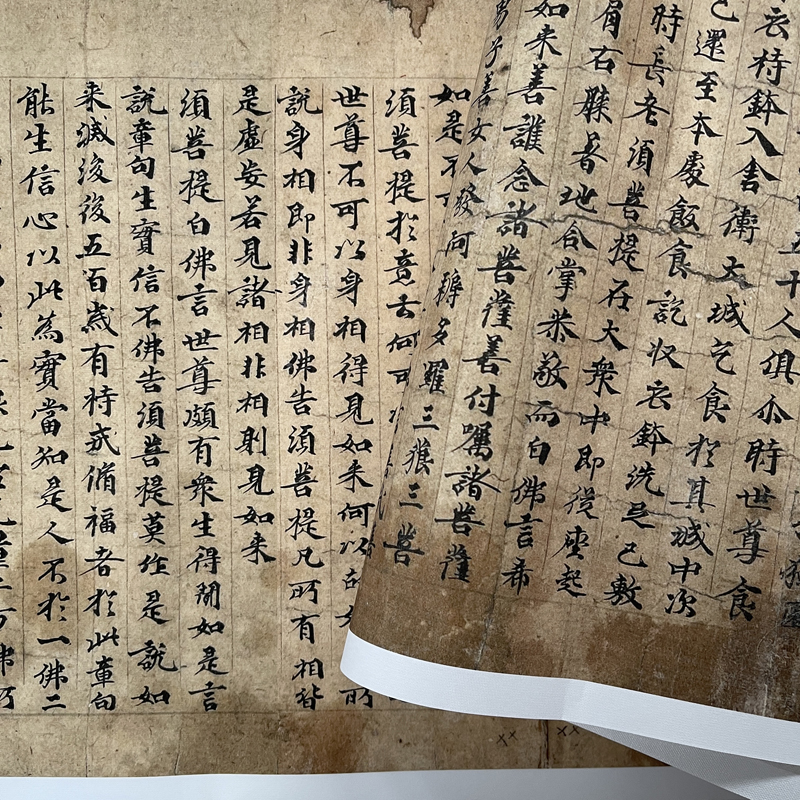 獨園
五十人俱尒時世尊食
衣持鉢入舍衛大城乞食扵其城中次
已還至本處飯食訖收衣鉢洗足已敷
時長老須菩提在大衆中即從座起
肩右膝著地合掌恭敬而白佛言希
如来善護念諸菩薩善付囑諸菩薩
男子善女人發阿耨多羅三藐三菩
如是不
須菩提扵意云何可
世尊不可以身相得見如来何以故如所
說身相即非身相佛告須菩提凡所有相皆
是虛妄若見諸相非相則見如来
須菩提白佛言世尊頗有衆生得聞如是言
說章句生實信不佛告須菩提莫作是說如
来滅後後五百歲有持戒脩福者扵此章句
能生信心以此為實當知是人不扵一佛二